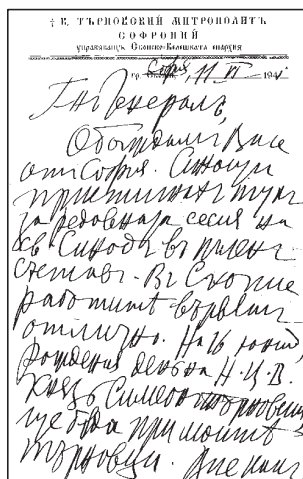 † В. ТЪРНОВСКИЙ МИТРОПОЛИТЪ
СОФРОНИЙ
управляващъ Скопско-Велешката епархия
гр. София, 11 VI 1941
Г-нъ Генералъ,
Обаждамъ Ви се
отъ София. Снощи
пристигнахъ тукъ
за редовната сесия на
Св. Синодъ въ пъленъ
съставъ. Въ Скопие
работитѣ вървятъ
отлично. На 16 юний,
рождения денъ на Н. Ц. В.
Князъ Симеонъ Търновски,
ще бѫда при моитѣ
търновци.